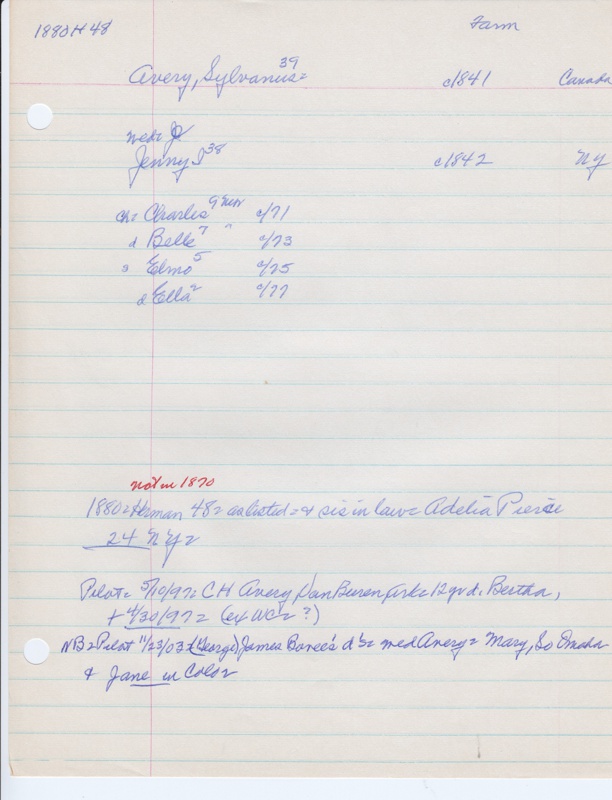 1880 H 48 Farm
Avery, Sylvanus= 39 c1841 Canada
Jenny I 38 c1842 NY
ch= Charles 9 c/71
d Belle 7 " c/73
s Elmo 5 c/75
d Ella 2 c/77
not in 1870
1880= Herman 48= as listed= & sis in law= Adelia Pierce
24 NY=
Pilot= 5/10/97= C H Avery, Van Buren Ark= 12 yr d. Bertha,
+ 4/30/97= (ex WC= ?)
NB= Pilot 11/23/03= (George) James Bonee's d's= med Avery= Mary, So Omaha
& Jane in Color